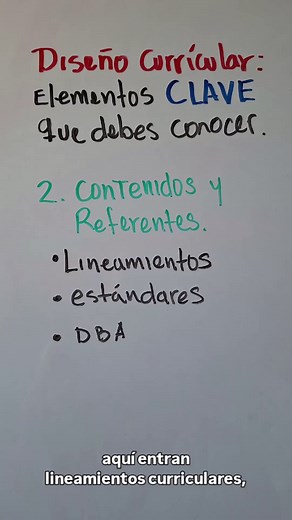 Diseño Currícular:
Elementos CLAVE
que debes conocer.
2. Contenidos y
Referentes.
• Lineamientos
• estándares
• DBA
aquí entran
lineamientos curriculares,